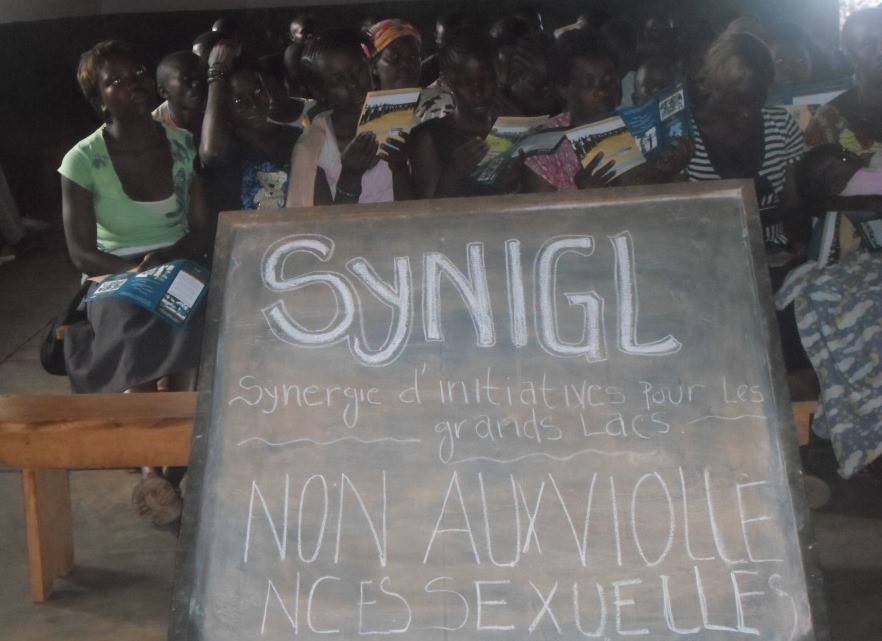 SyNIGL
Synergie d'initiatives pour Les
grands Lacs
NON AUX VIOLLE
NCES SEXUELLES